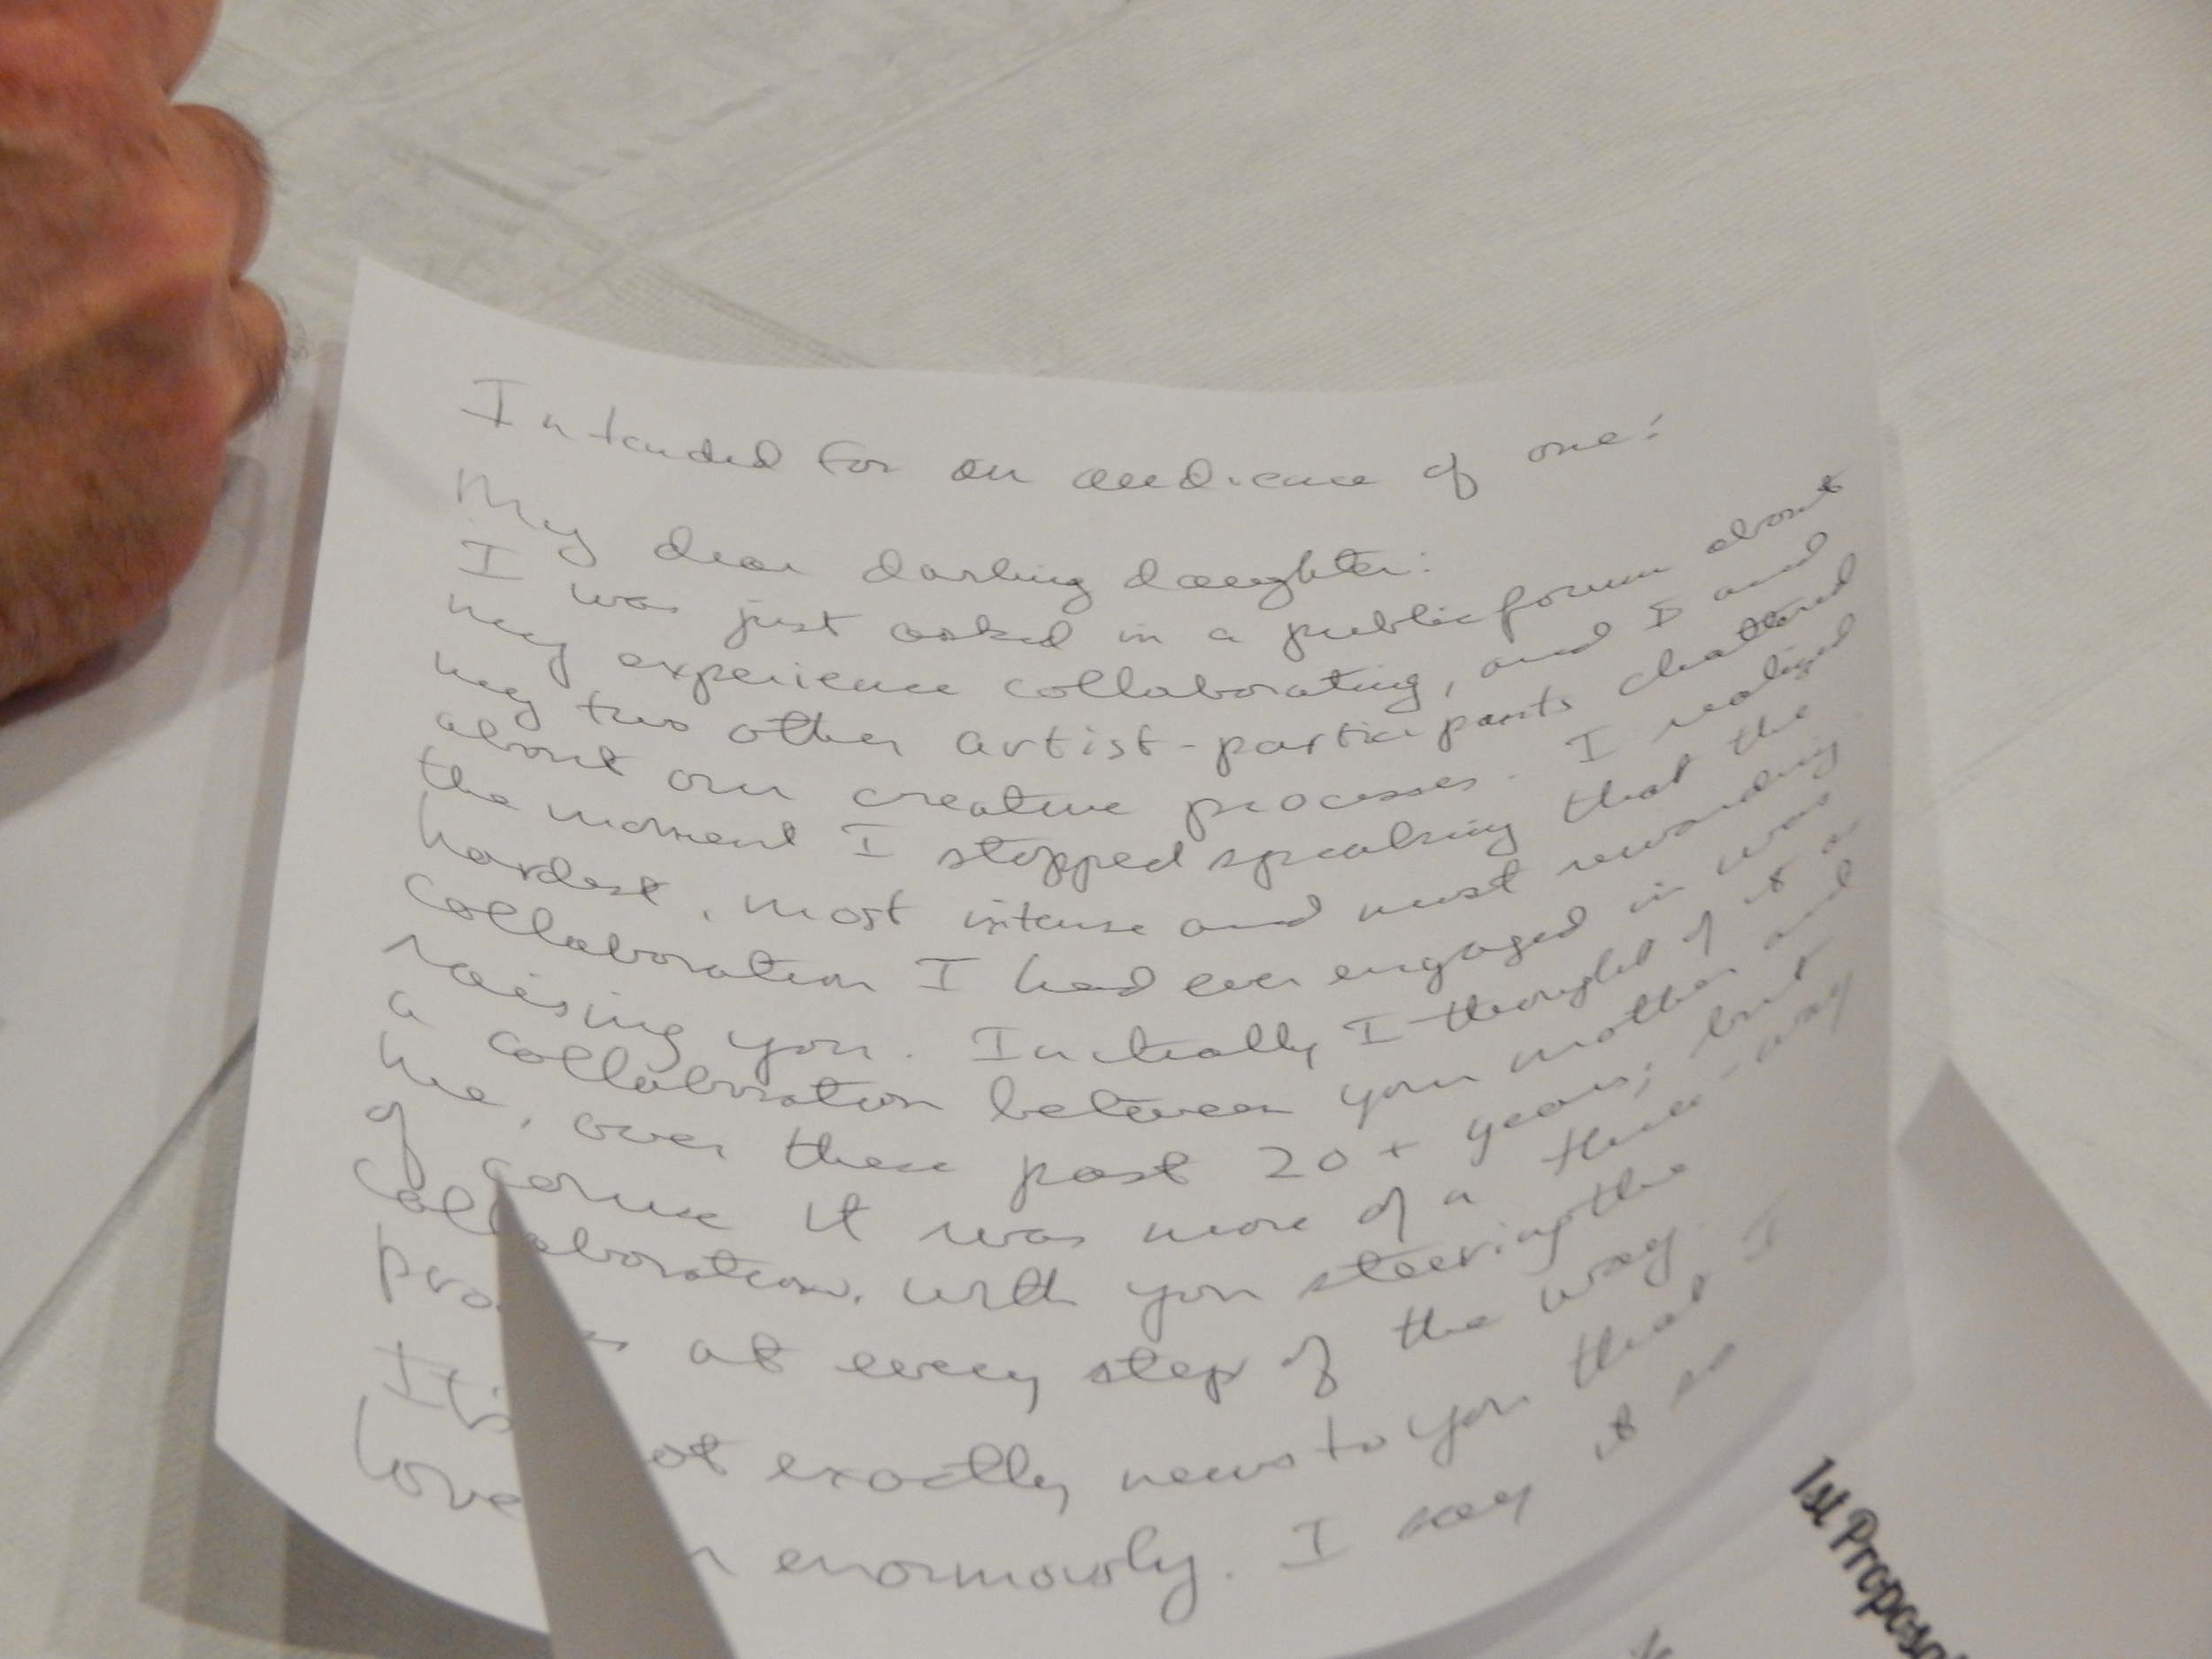 Intended for an audience of one:
My dear darling daughter:
I was just asked in a public forum about
my experience collaborating, and I and
my two other artist-participants chattered
about our creative processes. I realized
the moment I stopped speaking that the
hardest, most intense and most rewarding
collaboration I had ever engaged in was
raising you. Inctially I thought of it as
a collaboration between your mother and
me, over these past 20+ years; but
of corse it was more of a three-way
collaboration, with you steering the
at every step of the way.
It's exactly news to you that I
love enormously. I say it so
1st Proposal